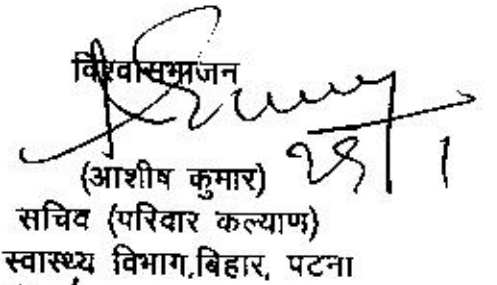 विश्वासभाजन
(आशीष कुमार)
सचिव (परिवार कल्याण)
स्वास्थ्य विभाग,बिहार, पटना